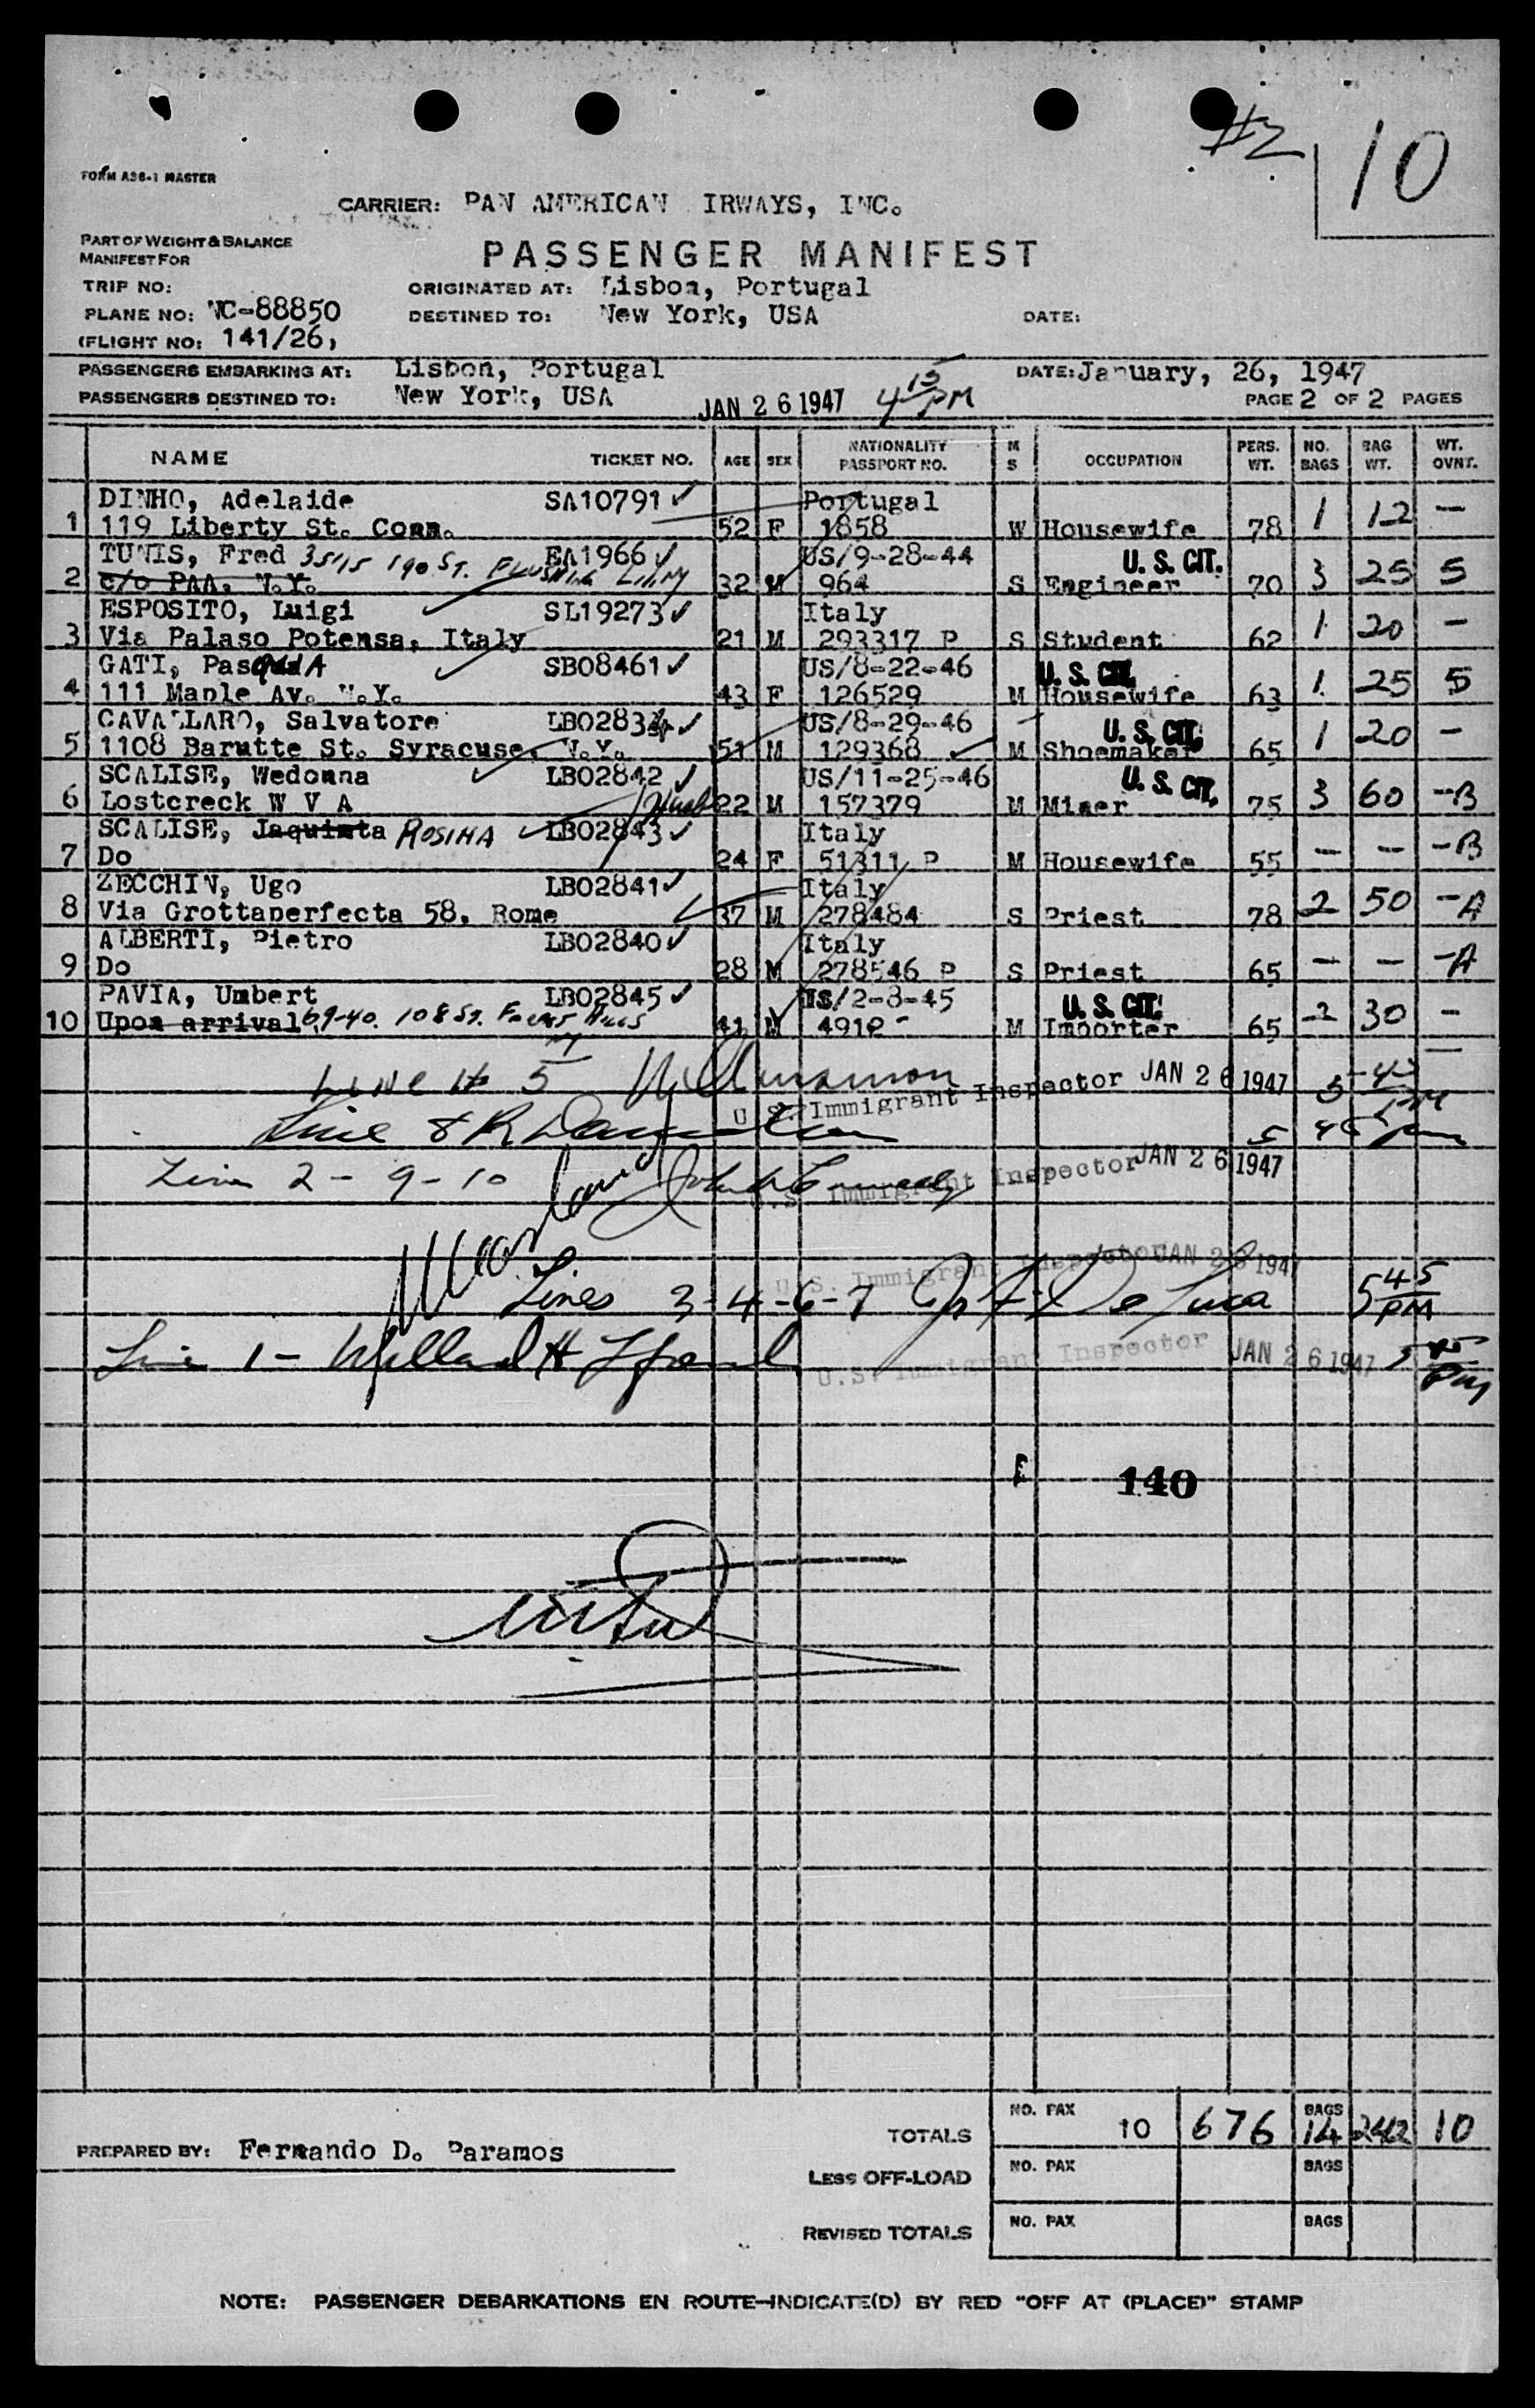 #2
10
FORM A36-1 MASTER
CARRIER: PAN AMERICAN IRWAYS, INC.
PART OF WEIGHT & BALANCE
MANIFEST FOR
PASSENGER MANIFEST
TRIP NO:
ORIGINATED AT: Lisbon, Portugal
PLANE NO: NC-88850
DESTINED TO: New York, USA
DATE:
(FLIGHT NO: 141/26,
PASSENGERS EMBARKING AT: Lisbon, Portugal
DATE: January, 26, 1947
PASSENGERS DESTINED TO: New York, USA
JAN 26 1947 4 15 PM
PAGE 2 OF 2 PAGES
NAME TICKET NO. AGE SEX NATIONALITY PASSPORT NO. M S OCCUPATION PERS. WT. NO. BAGS BAG WT. WT. OVNT.
DINHO, Adelaide SA10791 ✓ Portugal
1 119 Liberty St. Conn. 52 F 1858 W Housewife 78 1 12 —
TUNIS, Fred 35415 190 St. FLUSHING EA1966 ✓ US/9-28-44 U. S. CIT.
2 c/o PAA, N.Y. 32 M 964 S Engineer 70 3 25 5
ESPOSITO, Luigi SL19273 ✓ Italy
3 Via Palaso Potensa, Italy 21 M 293317 P S Student 62 1 20 —
GATI, PasquaA SB08461 ✓ US/8-22-46 U. S. CIT.
4 111 Maple Av. N.Y. 43 F 126529 M Housewife 63 1 25 5
CAVALLARO, Salvatore LB02834 ✓ US/8-29-46 U. S. CIT.
5 1108 Barutte St. Syracuse, N.Y. 51 M 129368 M Shoemaker 65 1 20 —
SCALISE, Wedonna LB02842 ✓ US/11-25-46 U. S. CIT.
6 Lostcreck W V A 22 M 157379 M Miner 75 3 60 -B
SCALISE, Jaquinta ROSINA LB02843 ✓ Italy
7 Do 24 F 51311 P M Housewife 55 — — -B
ZECCHIN, Ugo LB02841 ✓ Italy
8 Via Grottaperfecta 58, Rome 37 M 278484 S Priest 78 2 50 -A
ALBERTI, Pietro LB02840 ✓ Italy
9 Do 28 M 278546 P S Priest 65 — — -A
PAVIA, Umbert LB02845 ✓ US/2-8-45 U. S. CIT.
10 Upon arrival 69-40. 108 St. Forest Hills 41 M 4912 M Importer 65 2 30 —
Line # 5
U.S. Immigrant Inspector JAN 26 1947 5 45 PM
Line 8 5 45 pm
Line 2 - 9 - 10
U.S. Immigrant Inspector JAN 26 1947
U.S. Immigrant Inspector JAN 26 1947
Lines 3-4-6-7 De Luca 5 45 PM
Line 1 - Willard H
U.S. Immigrant Inspector JAN 26 1947 5 45 PM
140
TOTALS NO. PAX 10 676 BAGS 14 242 10
PREPARED BY: Fernando D. Paramos
LESS OFF-LOAD NO. PAX BAGS
REVISED TOTALS NO. PAX BAGS
NOTE: PASSENGER DEBARKATIONS EN ROUTE—INDICATE(D) BY RED "OFF AT (PLACE)" STAMP